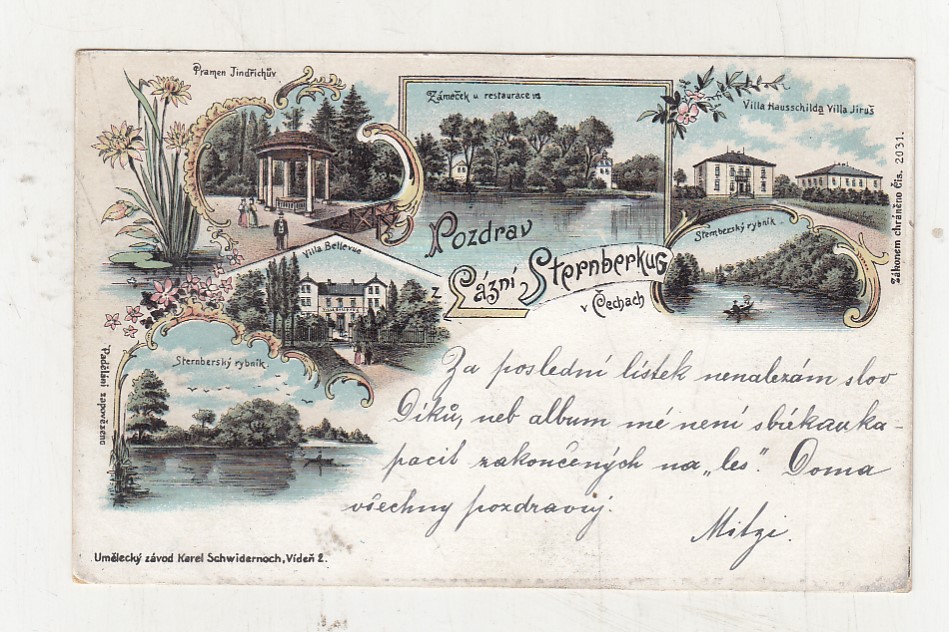 Pramen Jindřichův
Zámeček u restaurace
Villa Hausschilda Villa Jiruš
Zákonem chráněno Čís. 2031.
Pozdrav
z Lázní Sternberku
v Čechách
Sternberský rybník
Villa Bellevue
Sternberský rybník
Padělání zapovězeno
Za poslední lístek nenalezám slov
Díků, neb album mé není
pacit zakončených na „les“. Doma
všechny pozdravuj.
Mitzi.
Umělecký závod Karel Schwidernoch, Vídeň 2.